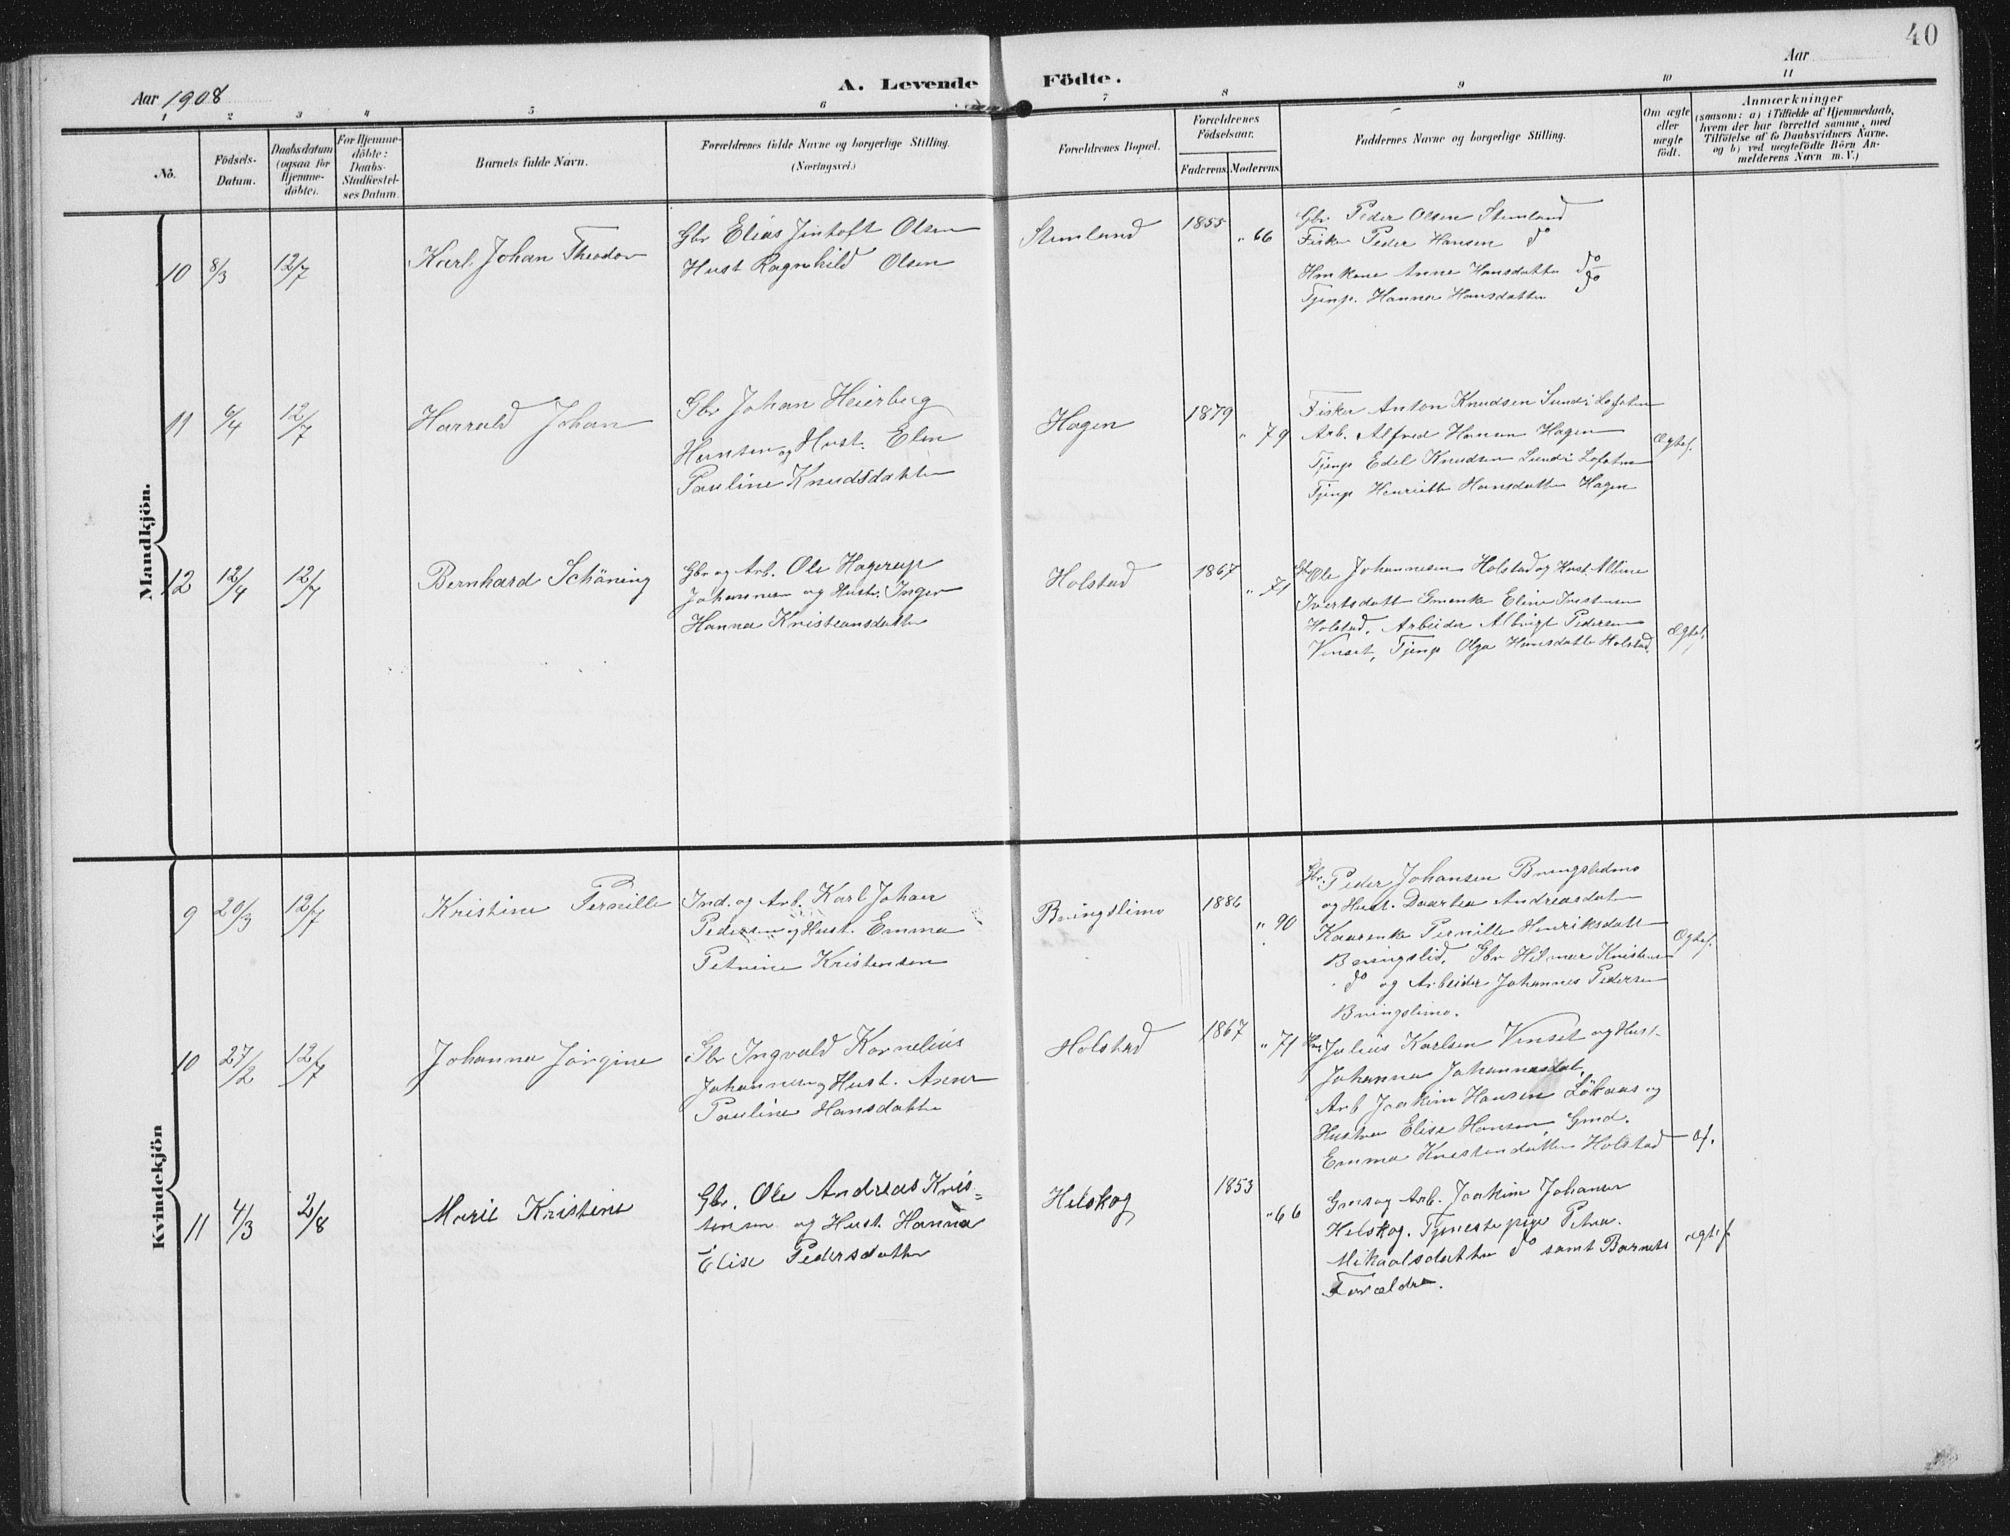 40
Aar 1908
A. Levende Födte.
Aar
1 2 3 4 5 6 7 8 9 10 11
No.
Födsels-Datum.
Daabsdatum (ogsaa for Hjemme-döbte).
For Hjemme-döbte: Daabs-Stadfæstel-ses Datum.
Barnets fulde Navn.
Forældrenes fulde Navne og borgerlige Stilling. (Næringsvei.)
Forældrenes Bopæl.
Forældrenes Födselsaar.
Faderens. Moderens.
Faddernes Navne og borgerlige Stilling.
Om ægte eller uægte födt.
Anmærkninger
(saasom: a) i Tilfælde af Hjemmedaab, hvem der har forrettet samme, med Tilföielse af to Daabsvidners Navne. og b) ved uægtefödte Börn An-melderens Navn m. V.)
Mandkjön.
10 8/3 12/7 Karl Johan Theodor
Gbr Elias Jentoft Olsen
Hust Ragnhild Olsen
Stemland 1855 " 66
Gbr. Peder Olsen Stemland
Fisker Peder Hansen do
Hmkone Anne Hansdatter do
Tjenp. Hanna Hansdatter do
11 6/4 12/7 Harrald Johan
Gbr Johan Heierberg
Hansen og Hust. Elen
Pauline Knudsdatter
Hagen 1879 " 79
Fisker Anton Knudsen Sund i Lofoten
Arb. Alfred Hansen Hagen
Tjenp Edel Knudsen Sund i Lofoten
Tjenp Henriette Hansdatter Hagen
Ægtef.
12 12/4 12/7 Bernhard Schöning
Gbr og Arb. Ole Hagerup
Johannesen og Hust. Inger
Hanna Kristiansdatter
Holstad 1867 " 71
Gbr Ole Johannesen Holstad og Hust Alline
Ivertsdatt Gmenke Eline Iversen
Holstad, Arbeider Albrigt Pedersen
Vinset, Tjenp Olga Hansdatter Holstad.
Ægtef.
Kvindekjön
9 20/3 12/7 Kristine Pernille
Ind. og Arb. Karl Johan
Pedersen og Hust. Emma
Petrine Kristensen
Bringslimo 1886 " 90
Gbr. Peder Johansen Bringslidmo
og Hust. Daartea Andreasdat
Kaarenke Pernille Henriksdatt
Bringslid, Gbr Hilmar Kristens
do og Arbeider Johannes Pedersen
Bringslimo.
Ægtef.
10 27/2 12/7 Johanna Jörgine
Gbr Ingvald Kornelius
Johannesen og Hust. Anna
Pauline Hansdatter
Holstad 1867 " 71
Julius Karlsen Vinset og Hust.
Johanna Johannesdat,
Arb Joakim Hansen Lökaas og
Hustru Elise Hansen, Gmd.
Emma Kristensdatter Holstad
Æf.
11 4/3 2/8 Marie Kristine
Gbr. Ole Andreas Kris=
tensen og Hust. Hanna
Elise Pedersdatter
Helskog 1853 " 66
Gms og Arb. Joakim Johansen
Helskog. Tjenestepige Petra
Mikaalsdatter do samt Barnets
Forældre.
ægtef